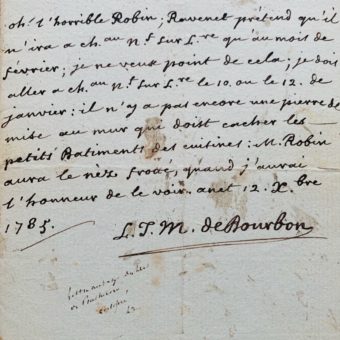 oh! l'horrible Robin; Ravenet prétend qu'il
n'ira a ch.au n.f sur L.re qu'au mois de
février; je ne veux point de cela; je dois
aller a ch.au n.f sur L.re le 10. ou le 12. de
janvier: il n'y a pas encore une pierre de
mise au mur que doist cacher les
petits Batiments des cuisines: M. Robin
aura le nèz frotté, quand j'aurai
l'honneur de le voir. anet 12. X.bre
1785.
L. J. M. de Bourbon